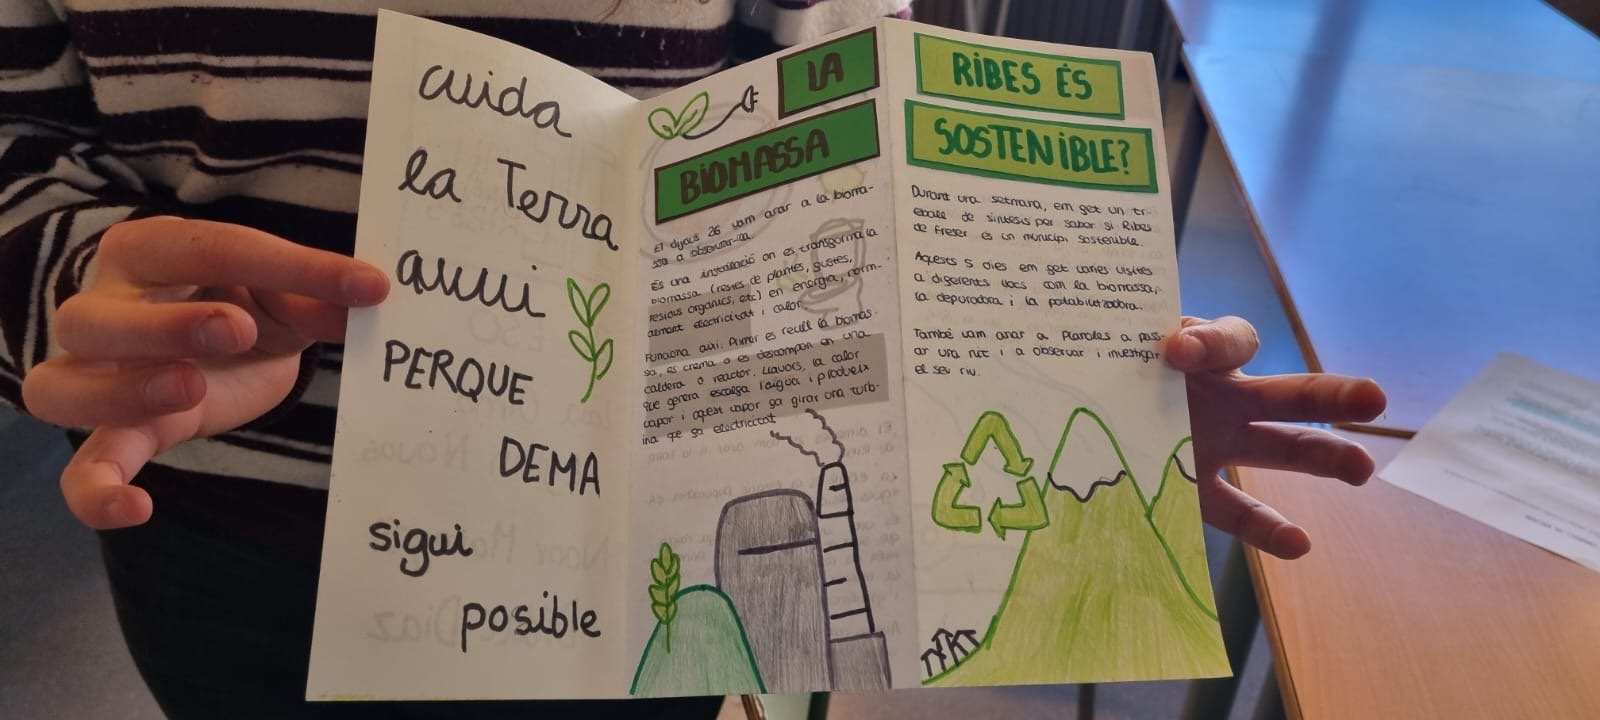 cuida
la Terra
avui
PERQUE
DEMA
sigui
posible
LA
BIOMASSA
El dijous 26 vam anar a la bioma-
ssa a observar-la.
És una instal·lació on es transforma la
biomassa (restes de plantes, fustes,
residus organics, etc) en energia, norm-
alment electricitat i calor.
Funciona aixi: Primer es recull la biomas-
sa, es crema o es descompon en una
caldera o reactor. Llavors, la calor
que genera escalfa l'aigua i produeix
vapor i aquest vapor fa girar una turb-
ina que fa electricitat
RIBES ÉS
SOSTENIBLE?
Durant una setmana, em fet un tr-
eball de sintesis per saber si Ribes
de Freser és un municipi sostenible.
Aquests 5 dies em fet varies visites
a diferents llocs com la biomassa,
la depuradora i la potabilitzadora.
També vam anar a Planoles a pass-
ar una nit i a observar i investigar
el seu riu.